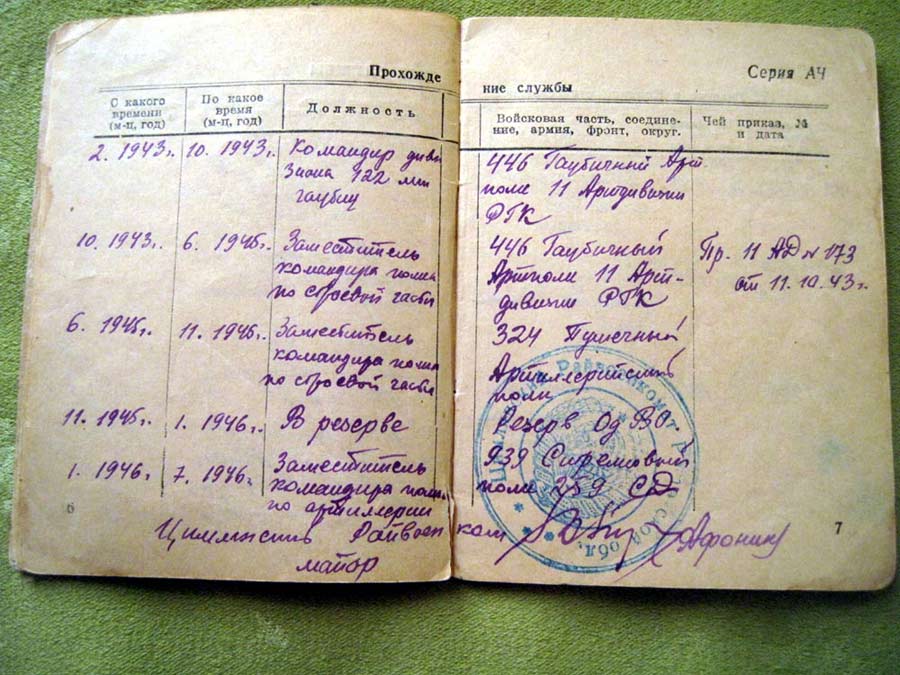 Прохожде
ние службы
Серия АЧ
С какого времени (м-ц, год)
По какое время (м-ц, год)
Должность
Войсковая часть, соедине-
ние, армия, фронт, округ.
Чей приказ, №
и дата
2. 1943г. 10. 1943г. Командир диви
зиона 122 мм
гаубиц
446 Гаубичный Арт
полк 11 Артдивизии
РГК
10. 1943г. 6. 1945г. Заместитель
командира полка
по строевой части
446 Гаубичный
Артполк 11 Арт-
дивизии РГК
Пр. 11 АД № 173
от 11.10.43г.
6. 1945г. 11. 1945г. Заместитель
командира полка
по строевой части
324 Пушечный
Артиллерийский
полк
11. 1945г. 1. 1946г. В резерве
Резерв Од ВО
1. 1946г 7. 1946г. Заместитель
командира полка
по артиллерии
939 Стрелковый
полк 259 СД
Цимлянский Райвоен ком
майор
6
7